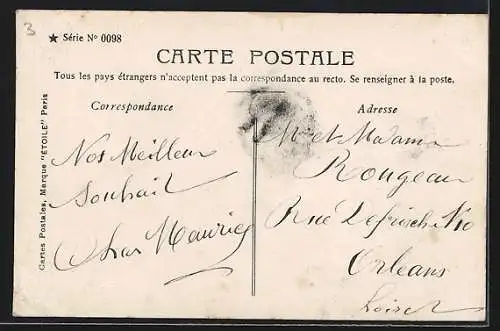 3
★ Série Nº 0098
CARTE POSTALE
Tous les pays étrangers n'acceptent pas la correspondance au recto. Se renseigner à la poste.
Correspondance
Nos Meilleur
Souhait
Cartes Postales, Marque "ÉTOILE" Paris
Adresse
Mr et Madame
Rougeau
Rue
Orleans
Loiret